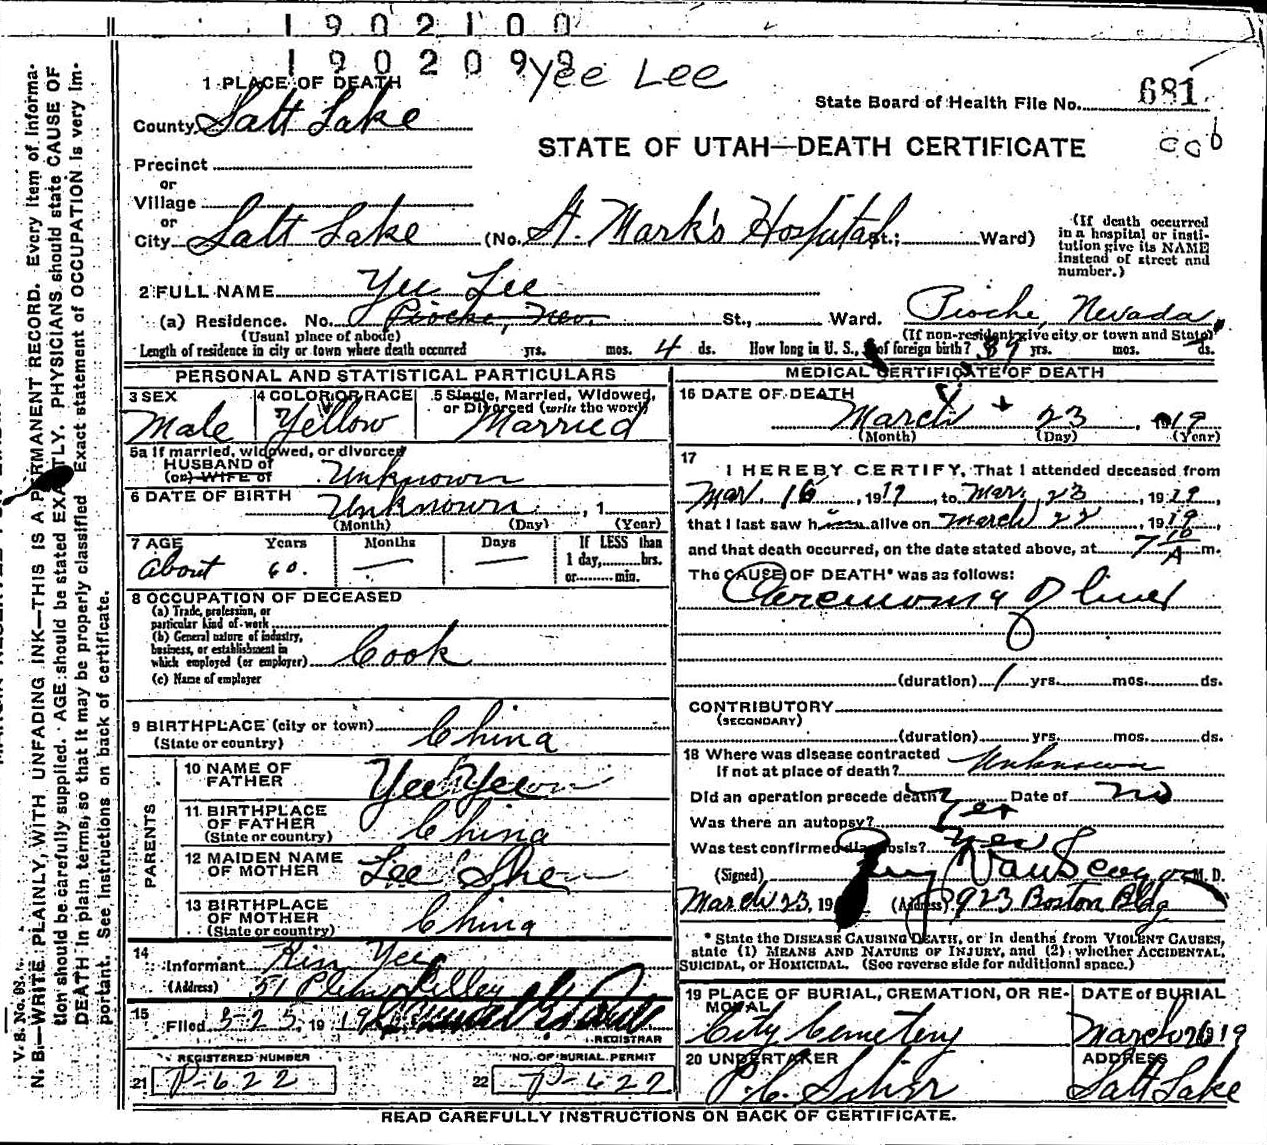 1902100
1902099
Yee Lee
1 PLACE OF DEATH
State Board of Health File No. 681
County Salt Lake
STATE OF UTAH—DEATH CERTIFICATE
Precinct
or
Village
or
City Salt Lake (No. St. Mark's Hospital St.; Ward)
(If death occurred in a hospital or institution give its NAME instead of street and number.)
2 FULL NAME Yee Lee
(a) Residence. No. Pioche, Nev. St., Ward. Pioche, Nevada
(Usual place of abode) (If non-resident give city or town and State)
Length of residence in city or town where death occurred yrs. mos. 4 ds. How long in U. S., if of foreign birth? 39 yrs. mos. ds.
PERSONAL AND STATISTICAL PARTICULARS
3 SEX
Male
4 COLOR OR RACE
Yellow
5 Single, Married, Widowed, or Divorced (write the word)
Married
5a If married, widowed, or divorced
HUSBAND of
(or) WIFE of
Unknown
6 DATE OF BIRTH Unknown, 1
(Month) (Day) (Year)
7 AGE Years Months Days
About 60. — —
If LESS than
1 day, hrs.
or min.
8 OCCUPATION OF DECEASED
(a) Trade, profession, or
particular kind of work
(b) General nature of industry,
business, or establishment in
which employed (or employer) Cook
(c) Name of employer
9 BIRTHPLACE (city or town)
(State or country) China
PARENTS
10 NAME OF FATHER Yee Yeon
11 BIRTHPLACE OF FATHER
(State or country) China
12 MAIDEN NAME OF MOTHER Lee Shee
13 BIRTHPLACE OF MOTHER
(State or country) China
14
Informant Kim Yee
(Address) 51 Plum Alley
15
Filed 3-25, 1919
REGISTRAR
REGISTERED NUMBER
21 P-622
NO. OF BURIAL PERMIT
22 P-622
MEDICAL CERTIFICATE OF DEATH
16 DATE OF DEATH
March 23, 1919
(Month) (Day) (Year)
17
I HEREBY CERTIFY, That I attended deceased from
Mar. 16, 1919, to Mar. 23, 1919,
that I last saw him alive on March 22, 1919,
and that death occurred, on the date stated above, at 7 10 A m.
The CAUSE OF DEATH* was as follows:
Carcinoma of liver
(duration) 1 yrs. mos. ds.
CONTRIBUTORY
(SECONDARY)
(duration) yrs. mos. ds.
18 Where was disease contracted
if not at place of death? Unknown
Did an operation precede death? Date of no
Was there an autopsy? Yes
Was test confirmed diagnosis? Yes
(Signed) Van Scoyoc M. D.
March 23, 19 (Address) 923 Boston Bldg
* State the DISEASE CAUSING DEATH, or in deaths from VIOLENT CAUSES,
state (1) MEANS AND NATURE OF INJURY, and (2) whether ACCIDENTAL,
SUICIDAL, or HOMICIDAL. (See reverse side for additional space.)
19 PLACE OF BURIAL, CREMATION, OR REMOVAL
City Cemetery
DATE of BURIAL
March 26 1919
20 UNDERTAKER
ADDRESS
Salt Lake
READ CAREFULLY INSTRUCTIONS ON BACK OF CERTIFICATE.
V. S. No. 98.
N. B.—WRITE PLAINLY, WITH UNFADING INK—THIS IS A PERMANENT RECORD. Every item of informa-
tion should be carefully supplied. AGE should be stated EXACTLY. PHYSICIANS should state CAUSE OF
DEATH in plain terms, so that it may be properly classified. Exact statement of OCCUPATION is very im-
portant. See instructions on back of certificate.